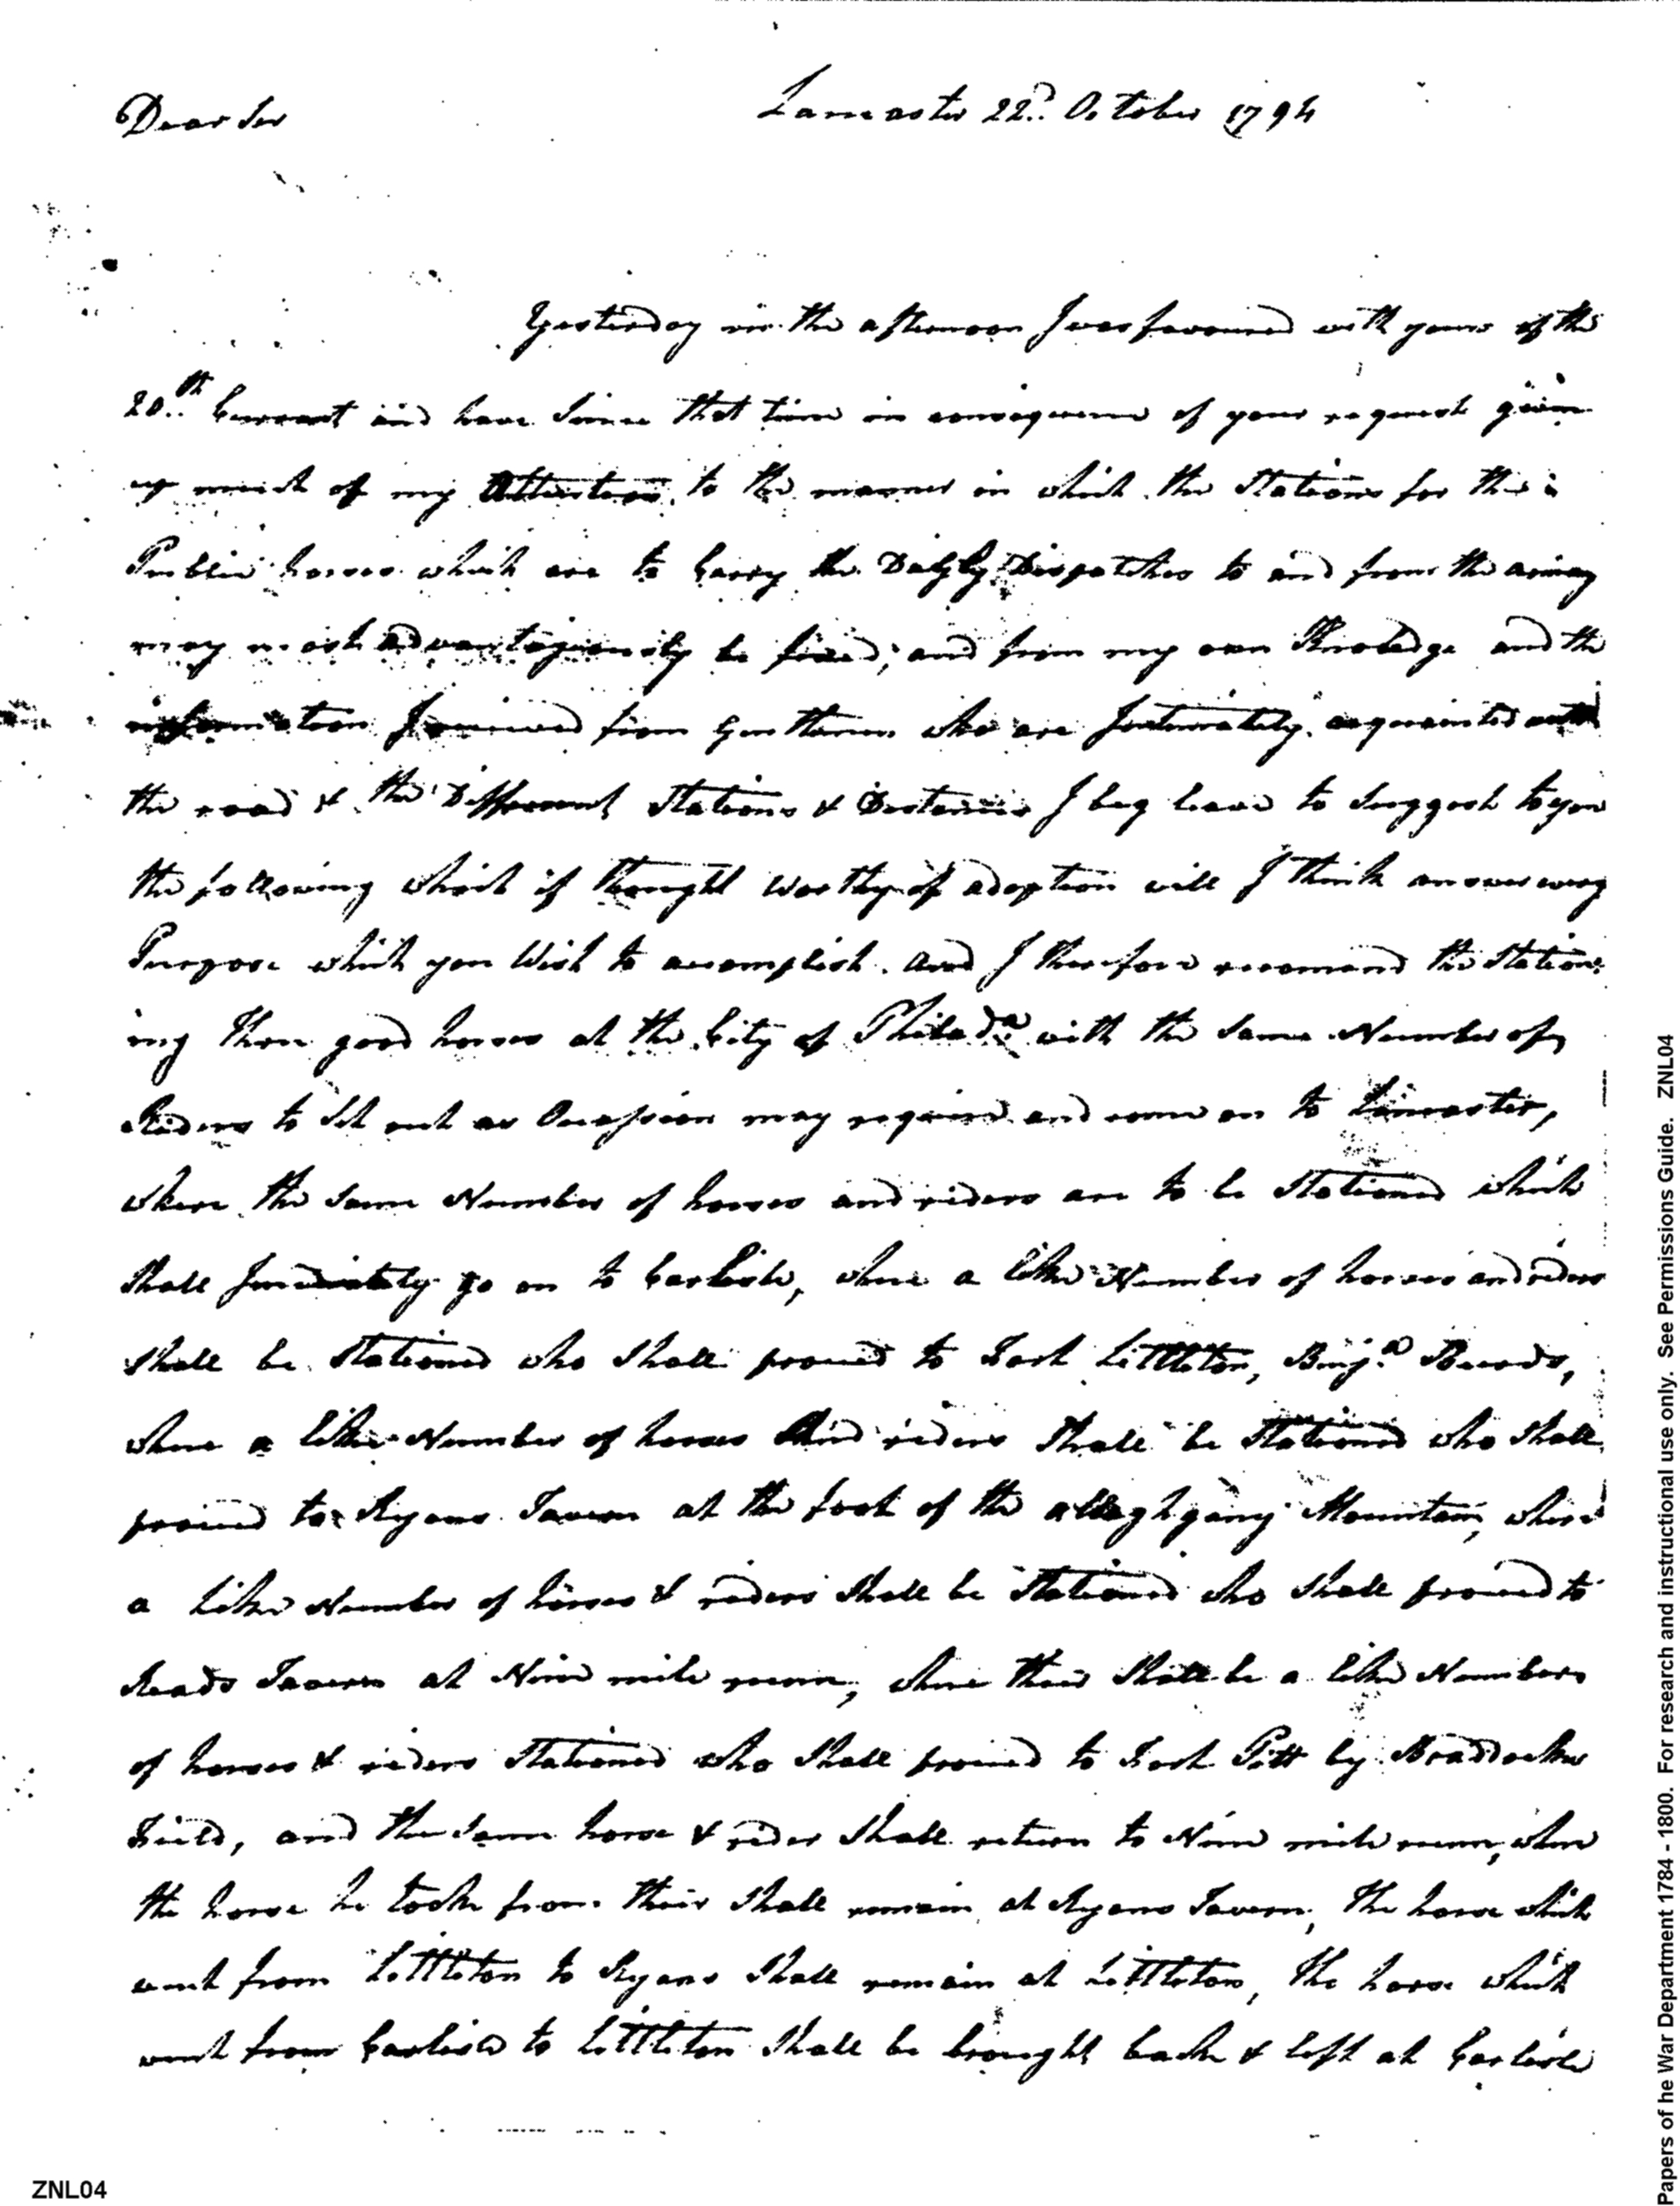 Dear Sir
Lancaster 22d. October 1794
Yesterday in the afternoon I was favoured with yours of the
20th. Currant and have Since that time in consequence of your request given
up much of my Attention to the manner in which the Stations for the
Public horses which are to Carry the Dayly Dispatches to and from the army
may most advantagiously be fixed; and from my own Knoledge and the
information I received from Gentlemen who are Intimately acquainted with
the road & the Different Stations & Distances I beg leave to Suggest to you
the following which if thought Worthy of adoption will I think answer every
Purpose which you Wish to accomplish. and I therefore recomand the Station:
ing Three good horses at the City of Philada. with the Same Number of
Riders to Set out as Occassion may require and come on to Lancaster,
where the Same Number of horses and riders are to be Stationed which
Shall Imediately go on to Carlisle, where a like Number of horses and riders
Shall be Stationed who Shall proceed to Fort Littleton, Benjn. Burds,
where a like Number of horses And riders Shall be Stationed who Shall
proceed to Ryans Tavern at the foot of the alleghgany Mountain, where
a like Number of horses & riders Shall be Stationed who Shall proceed to
Reads Tavern at Nine mile runn, where their Shall be a like Numbers
of horses & riders Stationed who Shall proceed to Fort Pitt by Braddocks
Field, and the Same horse & rider Shall return to Nine mile runn, where
the horse he took from their Shall remain at Ryans Tavern, The horse which
went from Littleton to Ryans Shall remain at Littleton, The horse which
went from Carlisle to Littleton Shall be brought back & left at Carlisle
ZNL04
Papers of he War Department 1784 - 1800. For research and instructional use only. See Permissions Guide. ZNL04